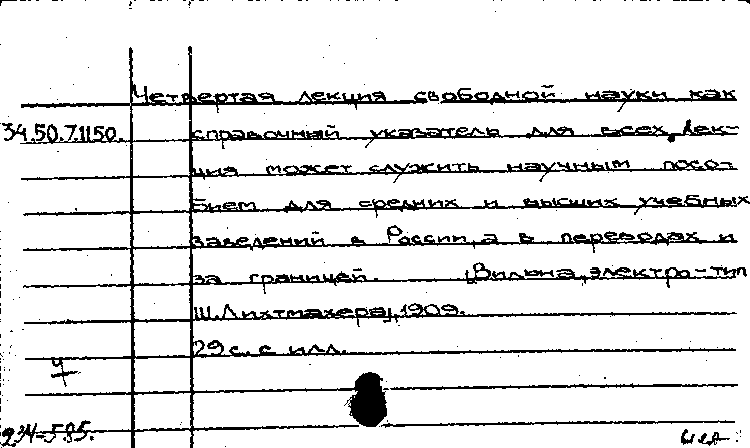 Четвертая лекция свободной науки как
34.50.7.1150. справочный указатель для всех. Лек-
ция может служить научным посо-
бием для средних и высших учебных
заведений в России, а в переводах и
за границей. [Вильна, электро-тип.
Ш. Лихтмахера], 1909.
29 с. с илл.